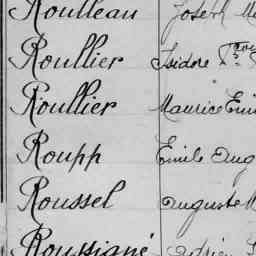 Roulleau Joseph
Roullier Isidore
Roullier Maurice
Roupp Emile Aug
Roussel Auguste
Roussigné Adrien